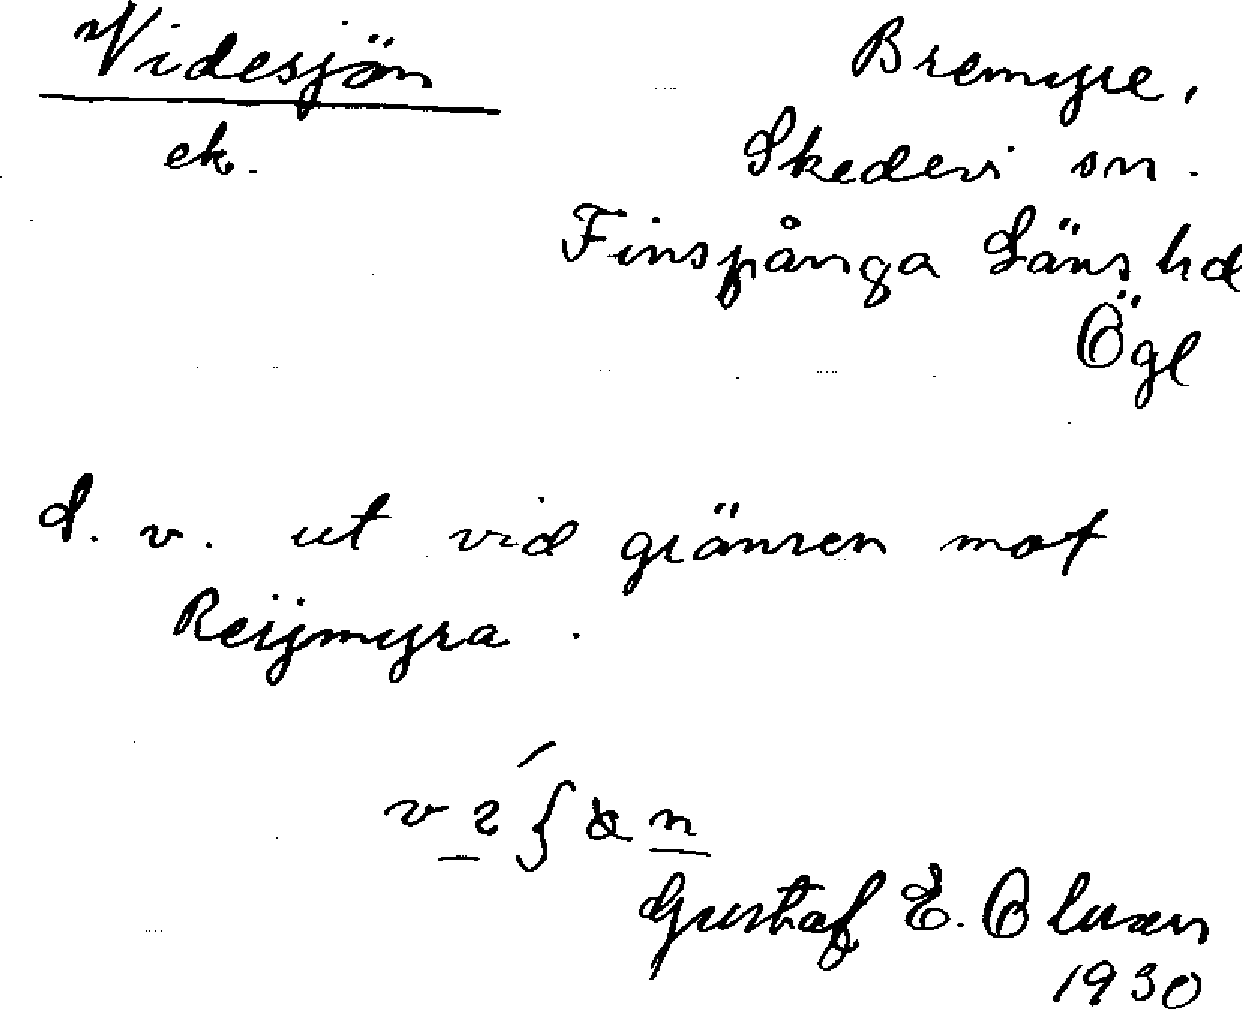 Videsjön
ek.
Bremyre,
Skedevi sn.
Finspånga Läns hd
Ögl
d. v. ut vid gränsen mot
Reijmyra.
Gustaf E. Olusen
1930